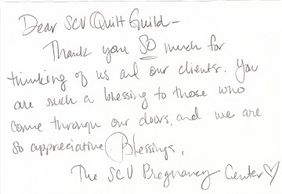 Dear SCV Quilt Guild -
Thank you SO much for
thinking of us and our clients. You
are such a blessing to those who
come through our doors, and we are
so appreciative. Blessings,
The SCV Pregnancy Center♡